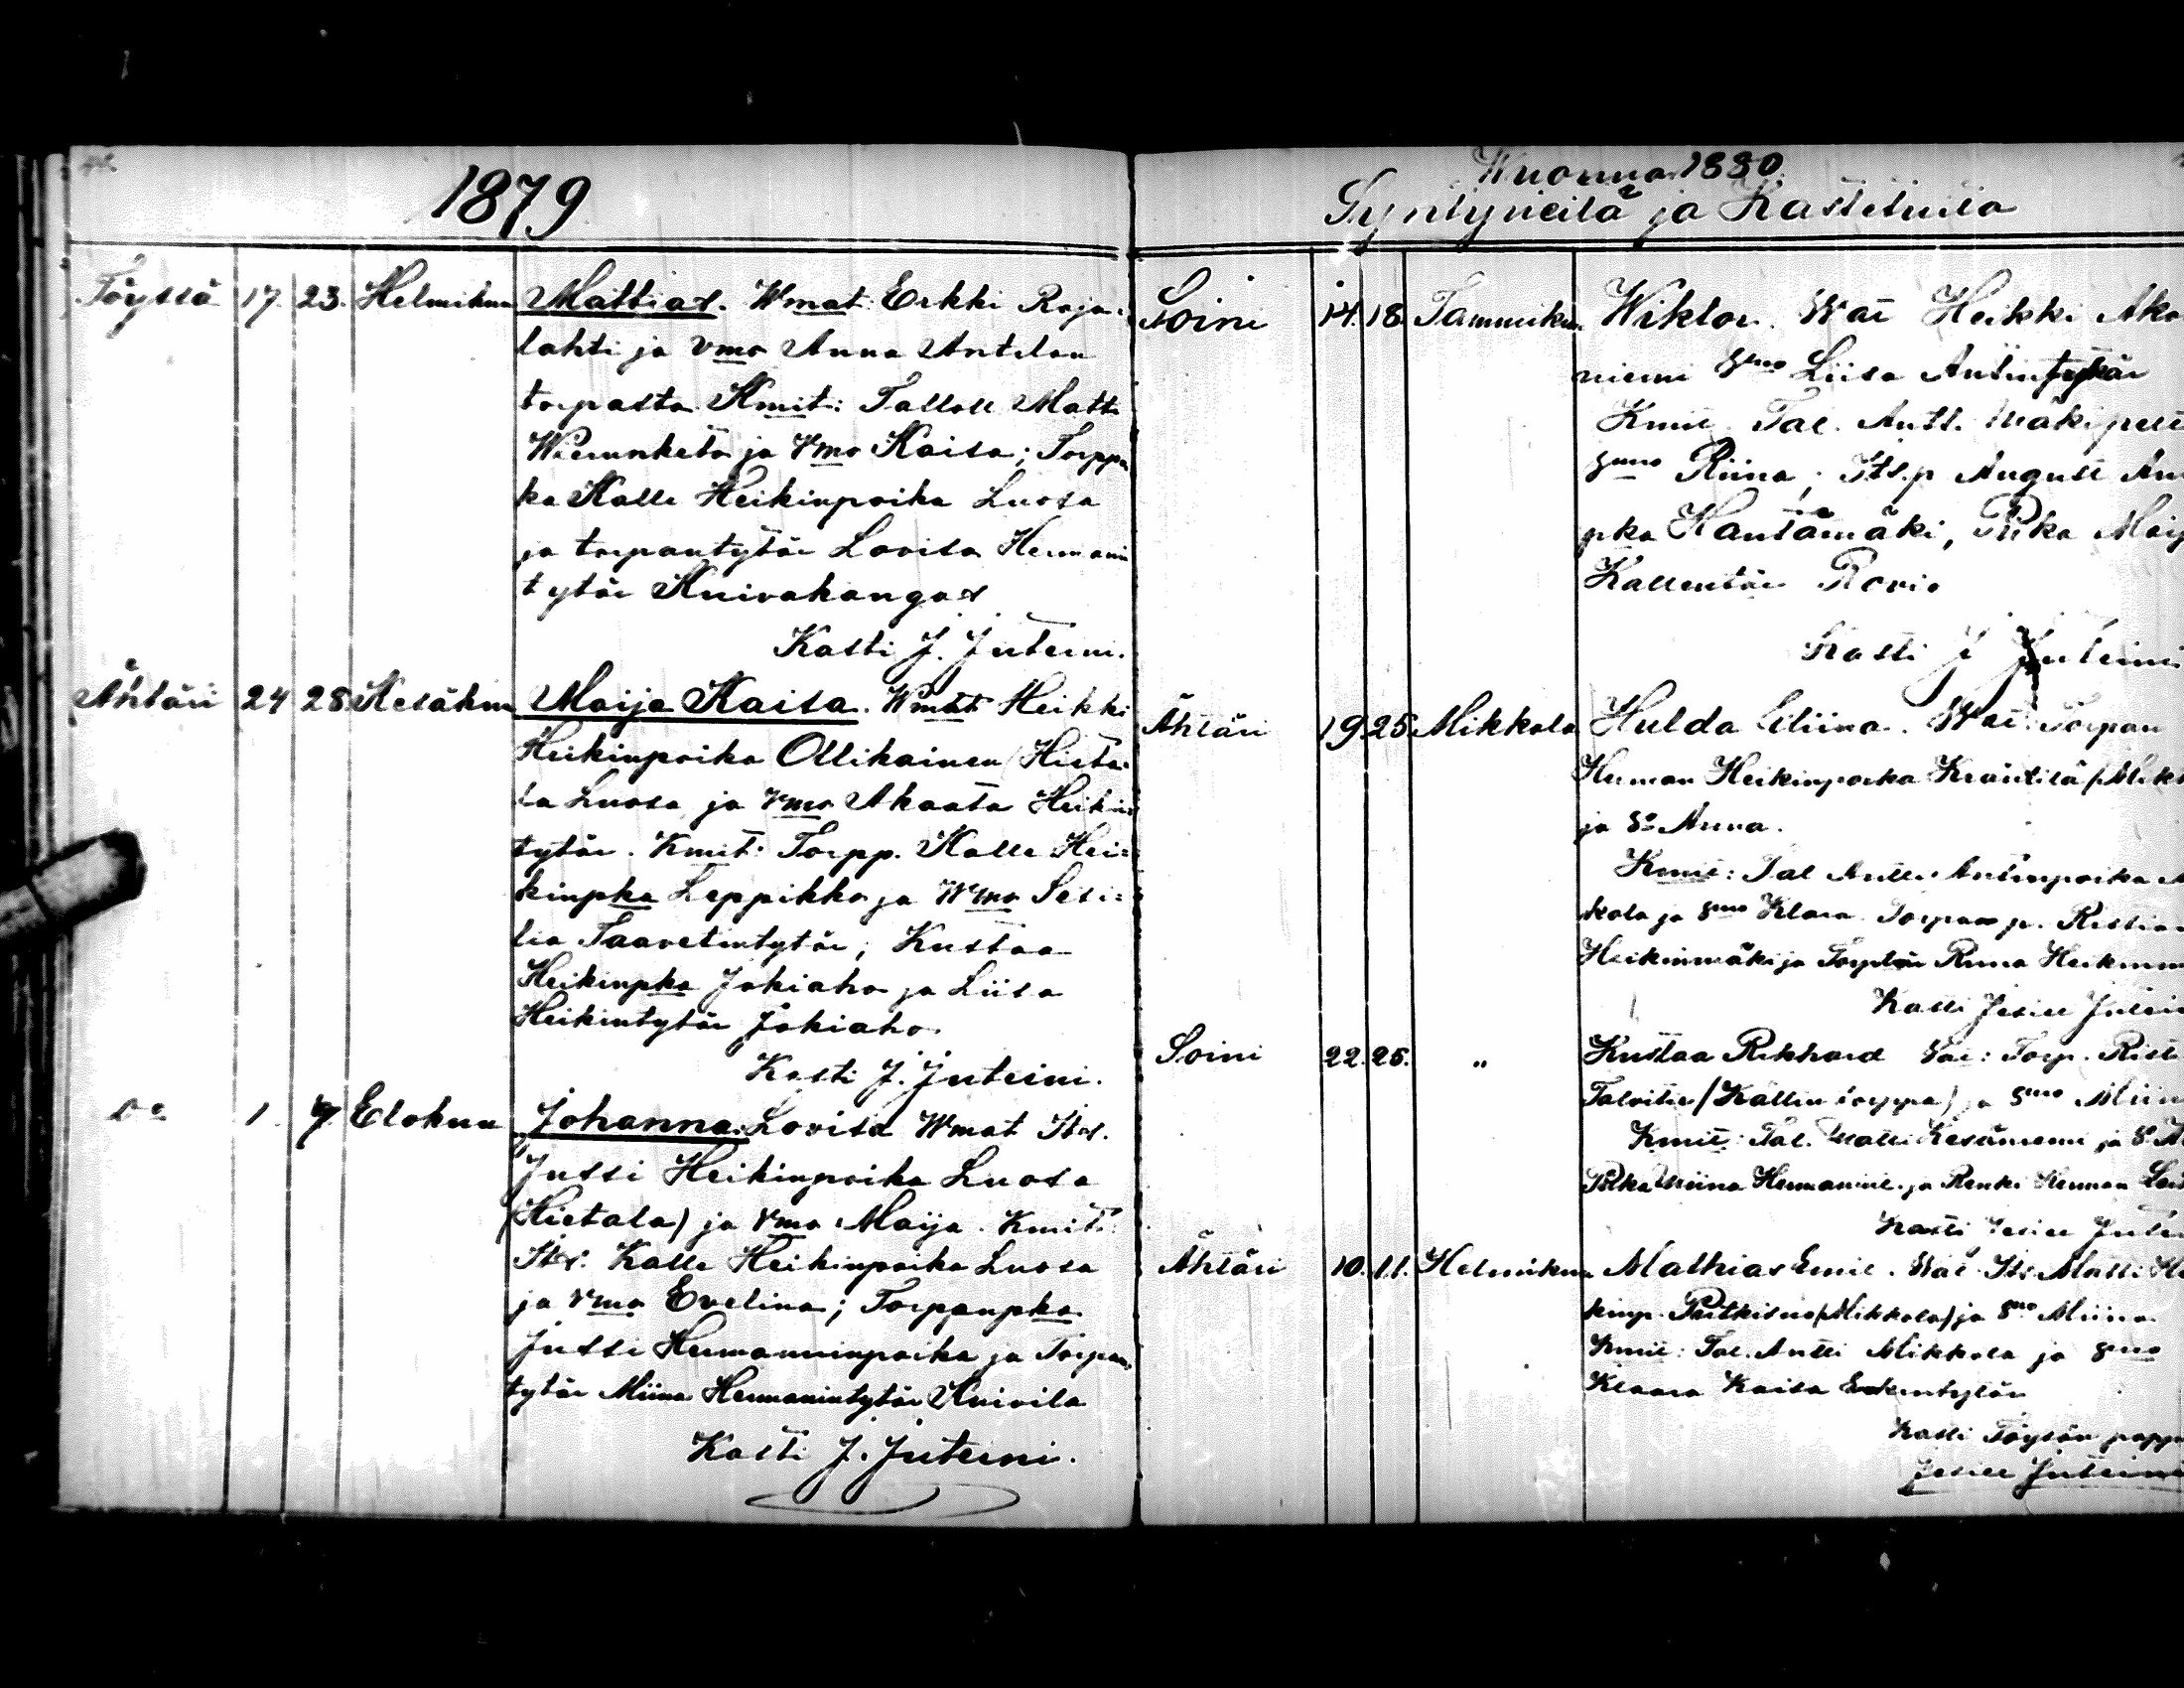 1879
Töyssä 17. 23. Helmikuu Mattias. Wmat: Erkki Raja-
lahti ja vmo Anna Antilan
torpasta. Kmit: Talloll. Matti
ja Vmo Kaisa; Torppa
ka Kalle Heikinpoika Luosa
ja torpantytär Lovisa Hermanin
tytär Knivakangas
Kasti J. Juteini.
Ähtäri 24 28 Kesäkuu Maija Kaisa. Wmat Heikki
Heikinpoika Ollikainen (Hieta-
la Luosa ja Vmo Akaata Heikin
tytär. Kmit: Torpp. Kalle Hei-
kinpka Leppikko ja Wmo Sesi-
lia Taavetintytär; Kustaa
Heikinpka Jokiaho ja Liisa
Heikintytär Jokiaho.
Kasti J. Juteini.
Do 1. 7 Elokuu Johanna Lovisa Wmat Its.
Jussi Heikinpoika Luosa
(Hietala) ja Vmo Maija. Kmit:
Its. Kalle Heikinpoika Luosa
ja Vmo Evelina; Torpanpka
Jussi Hermanninpoika ja Torpan-
tytär Miina Hermanintytär Knivila
Kasti J. Juteini.
Wuonna 1880
Syntyneitä ja Kastetuita
Soini 14. 18. Tammikuu Wiktor. Wat Heikki Aka
niemi Vmo Liisa Antintytär
Kmit. Tal. Antt. Mäkipelt
Vmo Riina; Its.p August An
pka Hantamäki, Piika Maij
Kallentär Rovio
Kasti J Juteini
Ähtäri 19. 25. Mikkola Hulda Eliina. Wat: Torpan
Herman Heikinpoika (Mikk
ja Vo Anna.
Kmit: Tal Antti Antinpoika M
kola ja Vmo Klara. Torpan p. Kustaa
Heikinmäki ja Torptär Riina Heikinm
Kasti Jesse Jutein
Soini 22. 25. " Kustaa Rikhard Vat: Torp. Risti
Talvitie (Kallin torppa) ja Vmo Miin
Kmit: Tal. Matti Kesäniemi ja Vo A
Piika Miina Hermanint. ja Renki Herman
Kasti Jesse Jute
Ähtäri 10. 11. Helmikuu Mathias Emil. Wat Its Matti H
kinp. Pitkäsuo (Mikkola) ja Vmo Miina.
Kmit: Tal. Antti Mikkola ja Vmo
Klaara Kaisa Erkintytär
Kasti Töysän pappi
Jesse Juteini